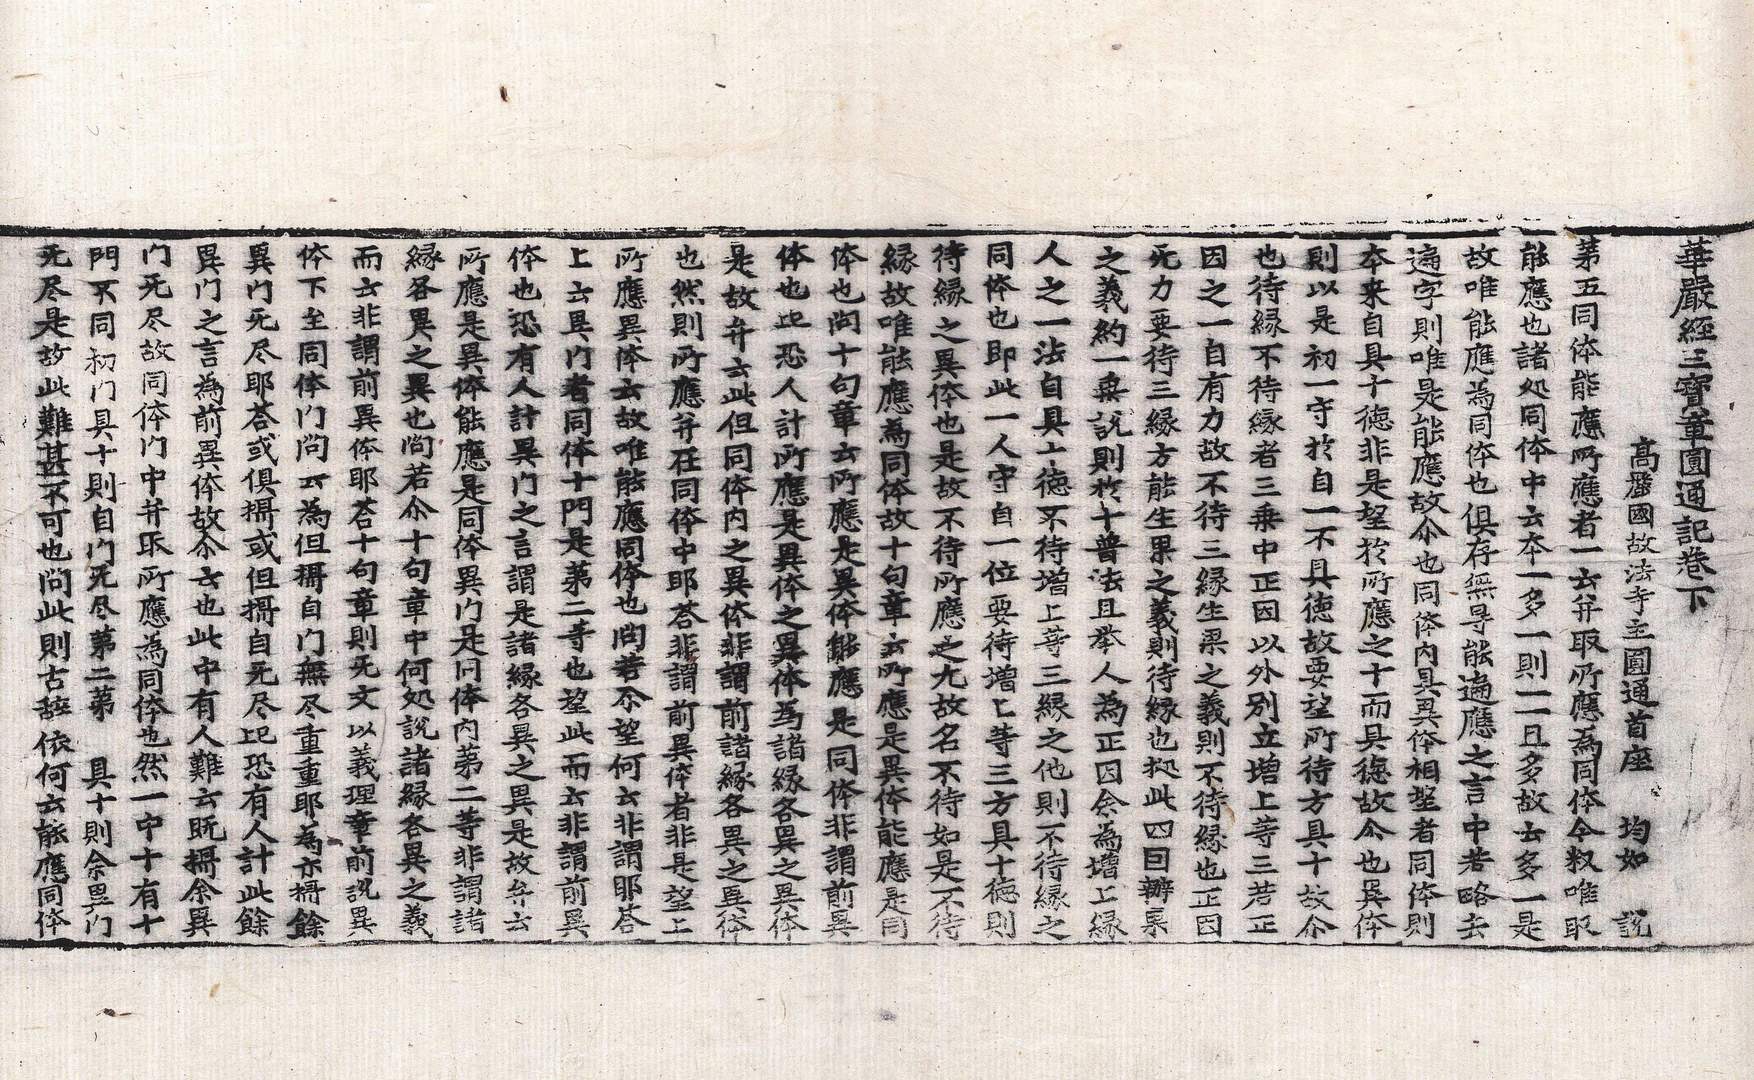 華嚴經三寶章圓通記卷下
高麗國故法寺主圓通首座　均如　說
第五同体能應所應者一云并取所應為同体今叙唯取
能應也諸処同体中云夲一多一則一一且多故云多一是
故唯能應為同体也俱存無导能遍應之言中若略去
遍字則唯是能應故尒也同体內具異体相望者同体則
夲来自具十德非是望於所應之十而具德故尒也異体
則以是初一守於自一不具德故要望所待方具十故尒
也待緣不待緣者三乗中正因以外別立增上等三若正
因之一自有力故不待三緣生果之義則不待緣也正因
无力要待三緣方能生果之義則待緣也扵此四回辦果
之義約一乗說則扵十普法且举人為正因余為增上緣
人之一法自具上德不待增上等三緣之他則不待緣之
同体也即此一人守自一位要待增上等三方具十德則
待緣之異体也是故不待所應之九故名不待如是不待
緣故唯能應為同体故十句章云所應是異体能應是同
体也问十句章云所應是異体能應是同体非謂前異
体也此恐人計所應是異体之異体為諸緣各異之異体
是故弁云此但同体內之異体非謂前諸緣各異之異体
也然則所應并在同体中耶荅非謂前異体者非是望上
所應異体云故唯能應同体也問若尒望何云非謂耶荅
上云異门者同体十門是第二等也望此而云非謂前異
体也恐有人計異门之言謂是諸緣各異之異是故弁云
所應是異体能應是同体異门是同体內第二等非謂諸
緣各異之異也问若尒十句章中何処說諸緣各異之義
而云非謂前異体耶荅十句章則无文以義理章前說異
体下至同体门问云為但攝自门無尽重重耶為亦攝餘
異门无尽耶荅或俱攝或但攝自无尽已恐有人計此餘
異门之言為前異体故尒云也此中有人難云既攝余異
门无尽故同体门中并取所應為同体也然一中十有十
門不同初门具十則自门无尽第二第　具十則余異门
无尽是故此難甚不可也问此則古辞依何云能應同体